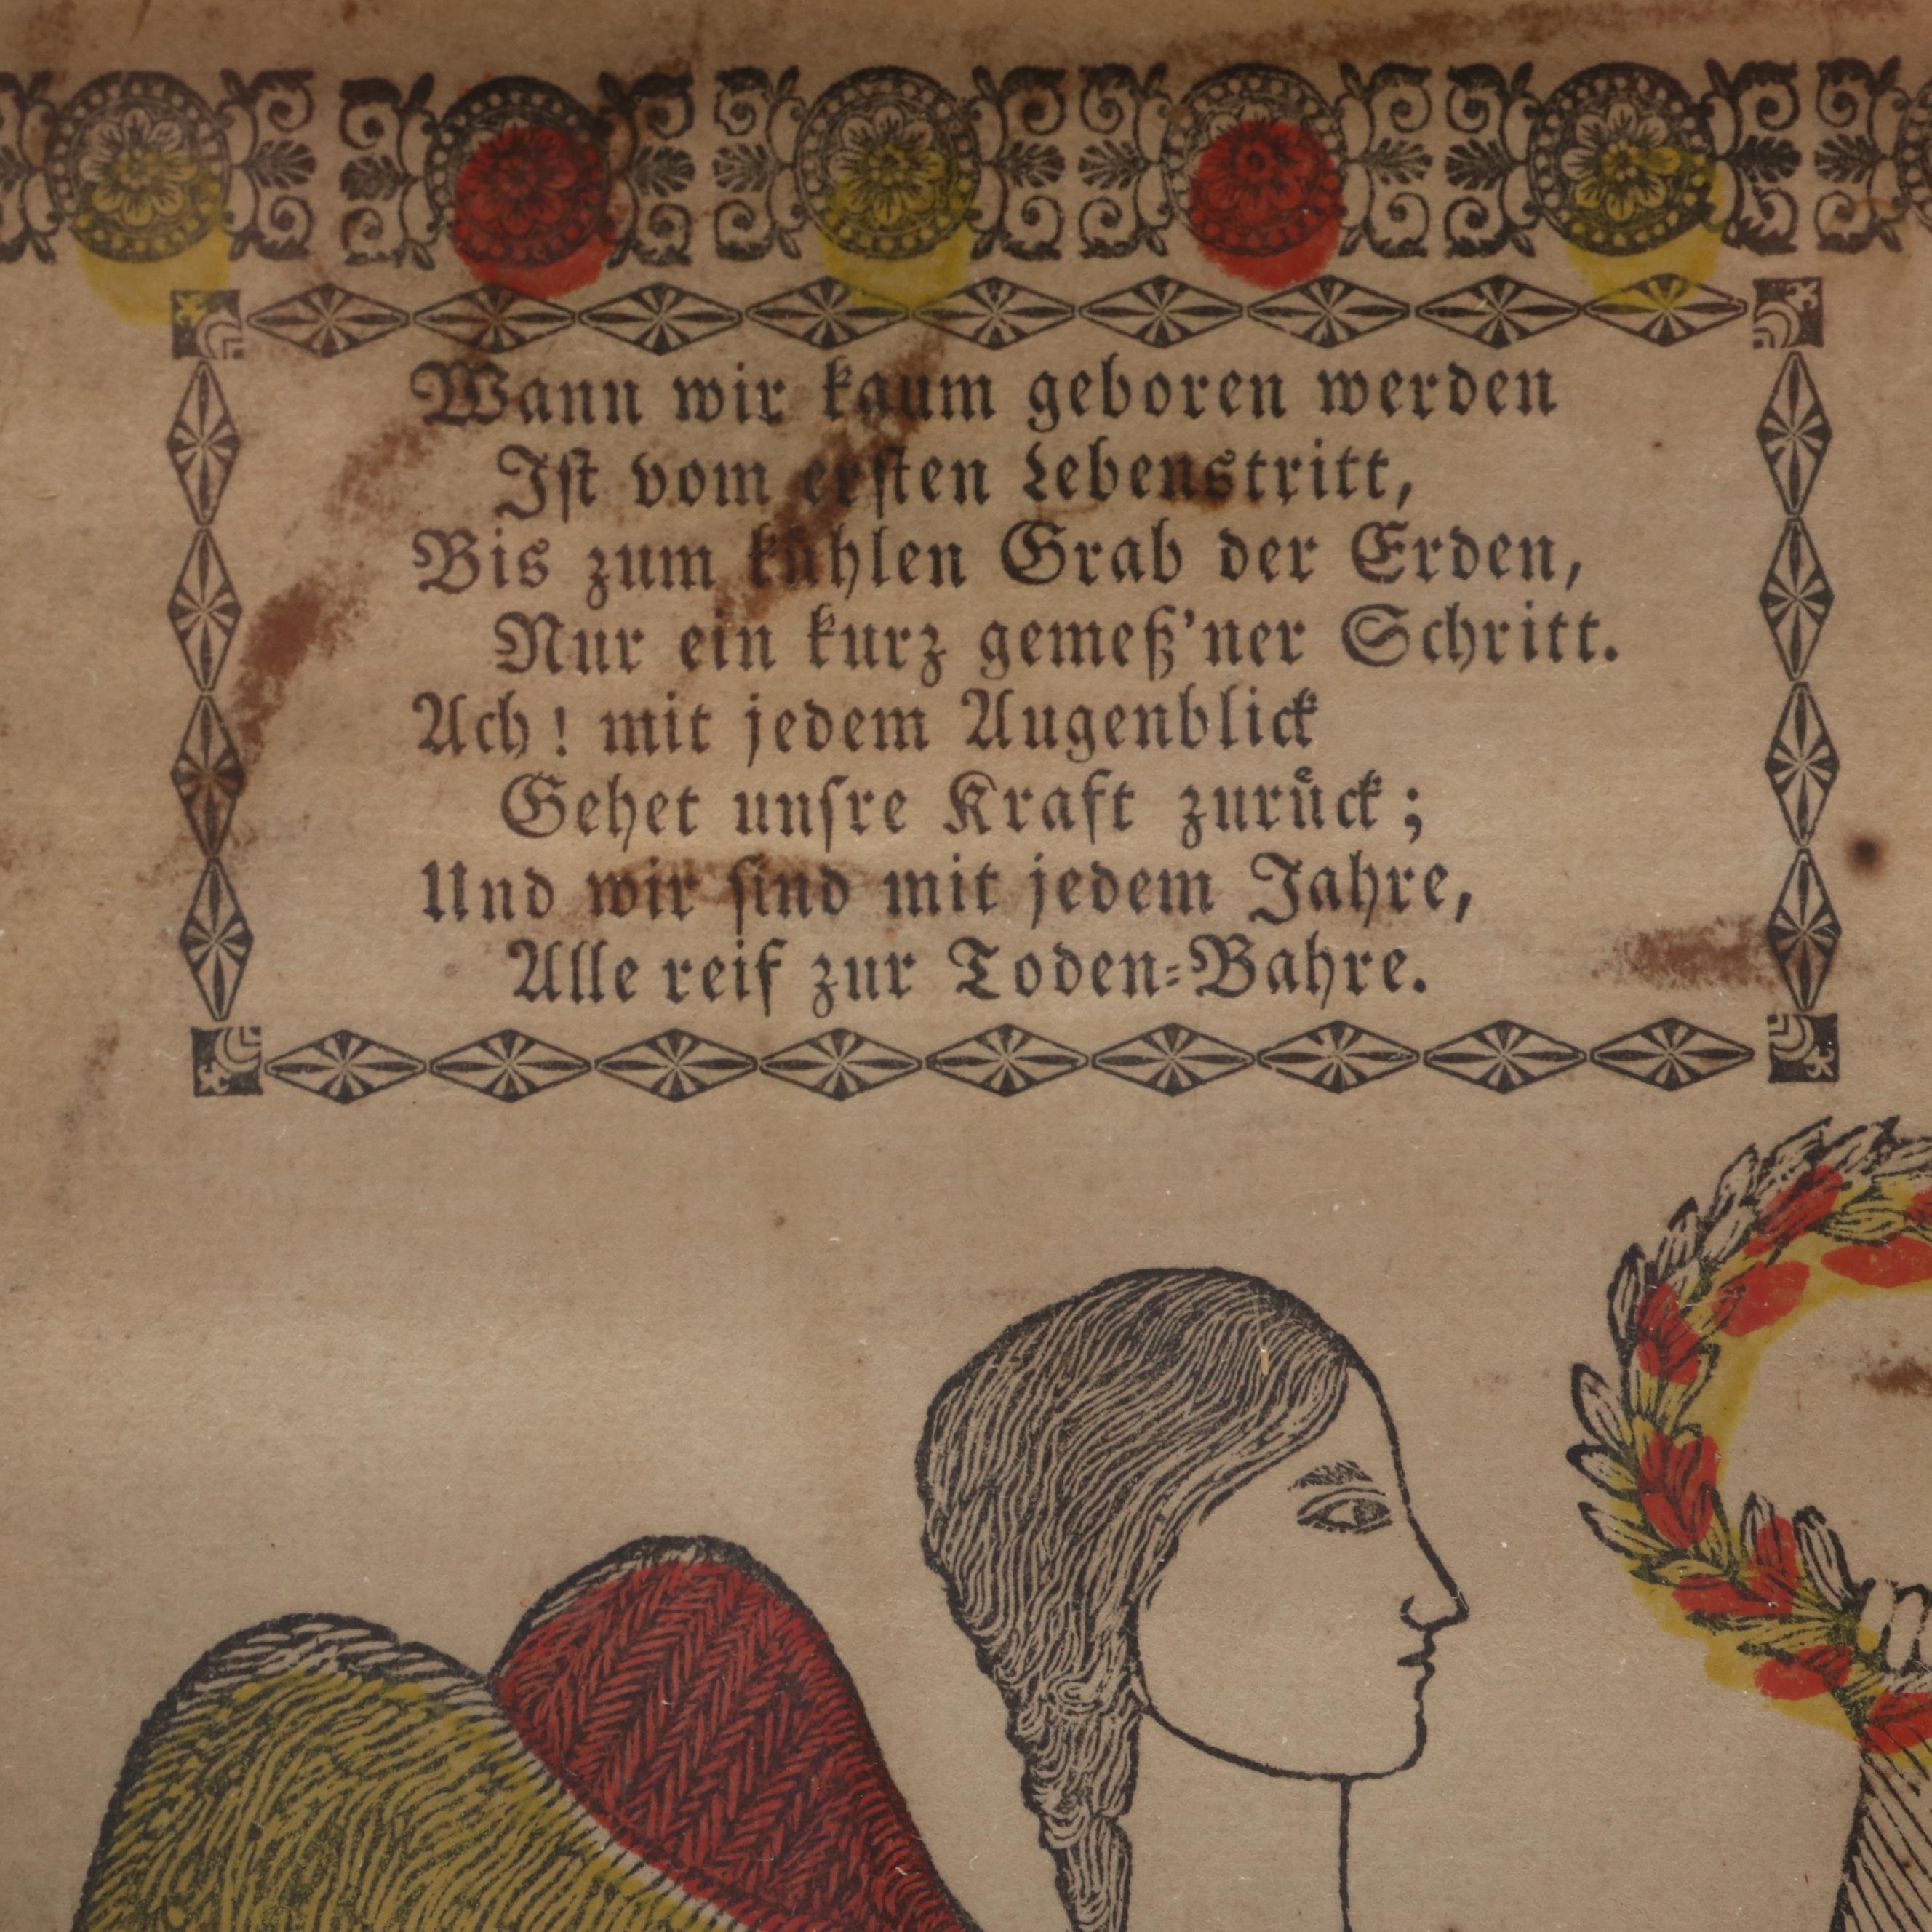 Wann wir kaum geboren werden
Iſt vom erſten Lebenstritt,
Bis zum kuͤhlen Grab der Erden,
Nur ein kurz gemeß'ner Schritt.
Ach! mit jedem Augenblick
Gehet unſre Kraft zuruͤck;
Und wir ſind mit jedem Jahre,
Alle reif zur Toden⸗Bahre.